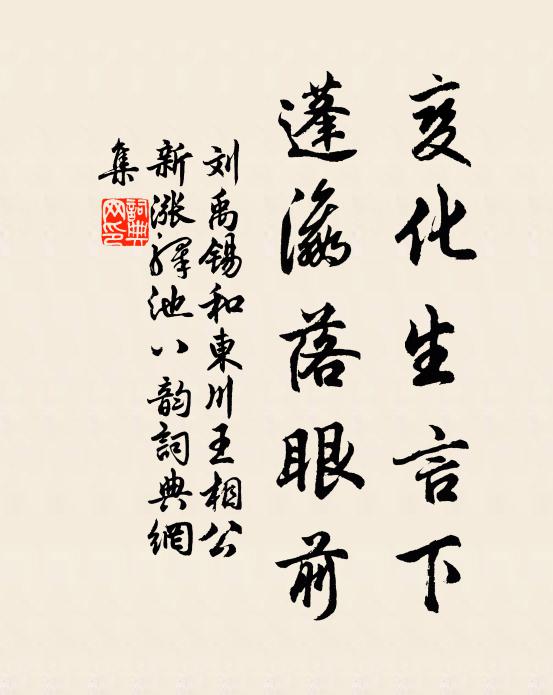 变化生言下
蓬瀛落眼前
刘禹锡和東川王相公
新涨驿池八韵詞典網
集
詞典
网印